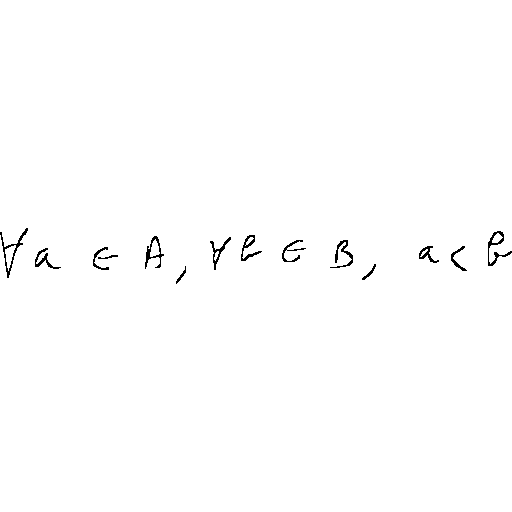 ∀a ∈ A, ∀b ∈ B, a < b